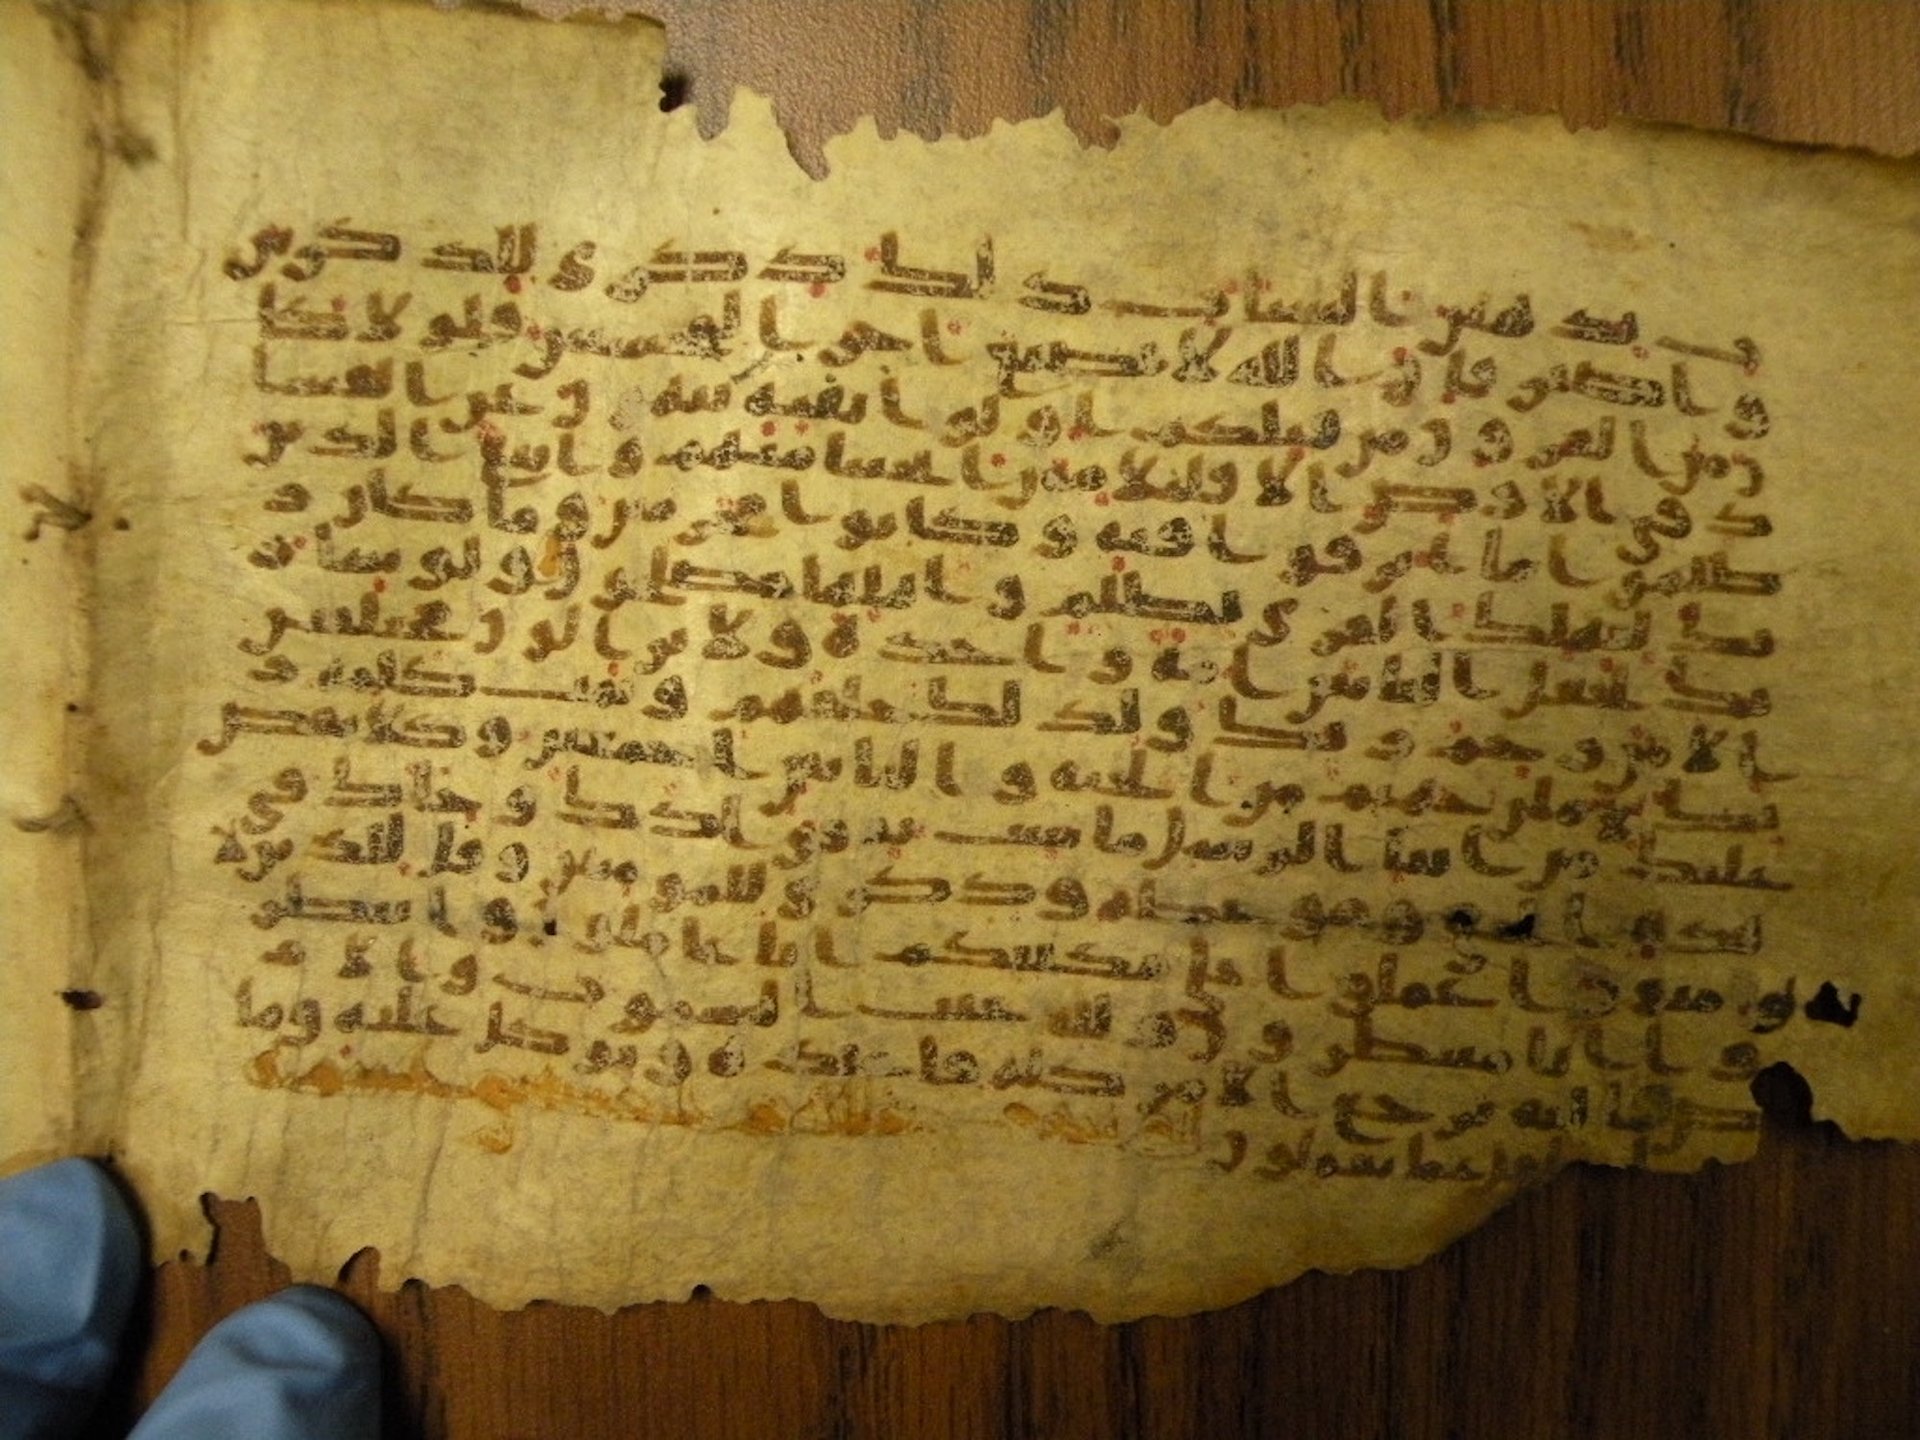 ت يذهبن السيات ذلك ذكرى للذكرين
و اصبر فان الله لا يضيع اجر المحسنين فلولا كا
ن من القرون من قبلكم اولوا بقية ينهون عن الفسا
د في الارض الا قليلا ممن انجينا منهم واتبع الذين
ظلموا ما اترفوا فيه وكانوا مجرمين وما كان ر
بك ليهلك القرى بظلم واهلها مصلحون ولو شا ر
بك لجعل الناس امة واحدة ولا يزالون مختلفين
الا من رحم ربك ولذلك خلقهم وتمت كلمة ر
بك لاملن جهنم من الجنة والناس اجمعين وكلا نقص
عليك من انبا الرسل ما نثبت به فوادك وجاك في
هذه الحق وموعظة وذكرى للمومنين وقل للذين لا
يومنون اعملوا على مكانتكم انا عملون وانتظر
وا انا منتظرون ولله غيب السموت والا ر
ض واليه يرجع الامر كله فاعبده وتوكل عليه وما
عما تعملون